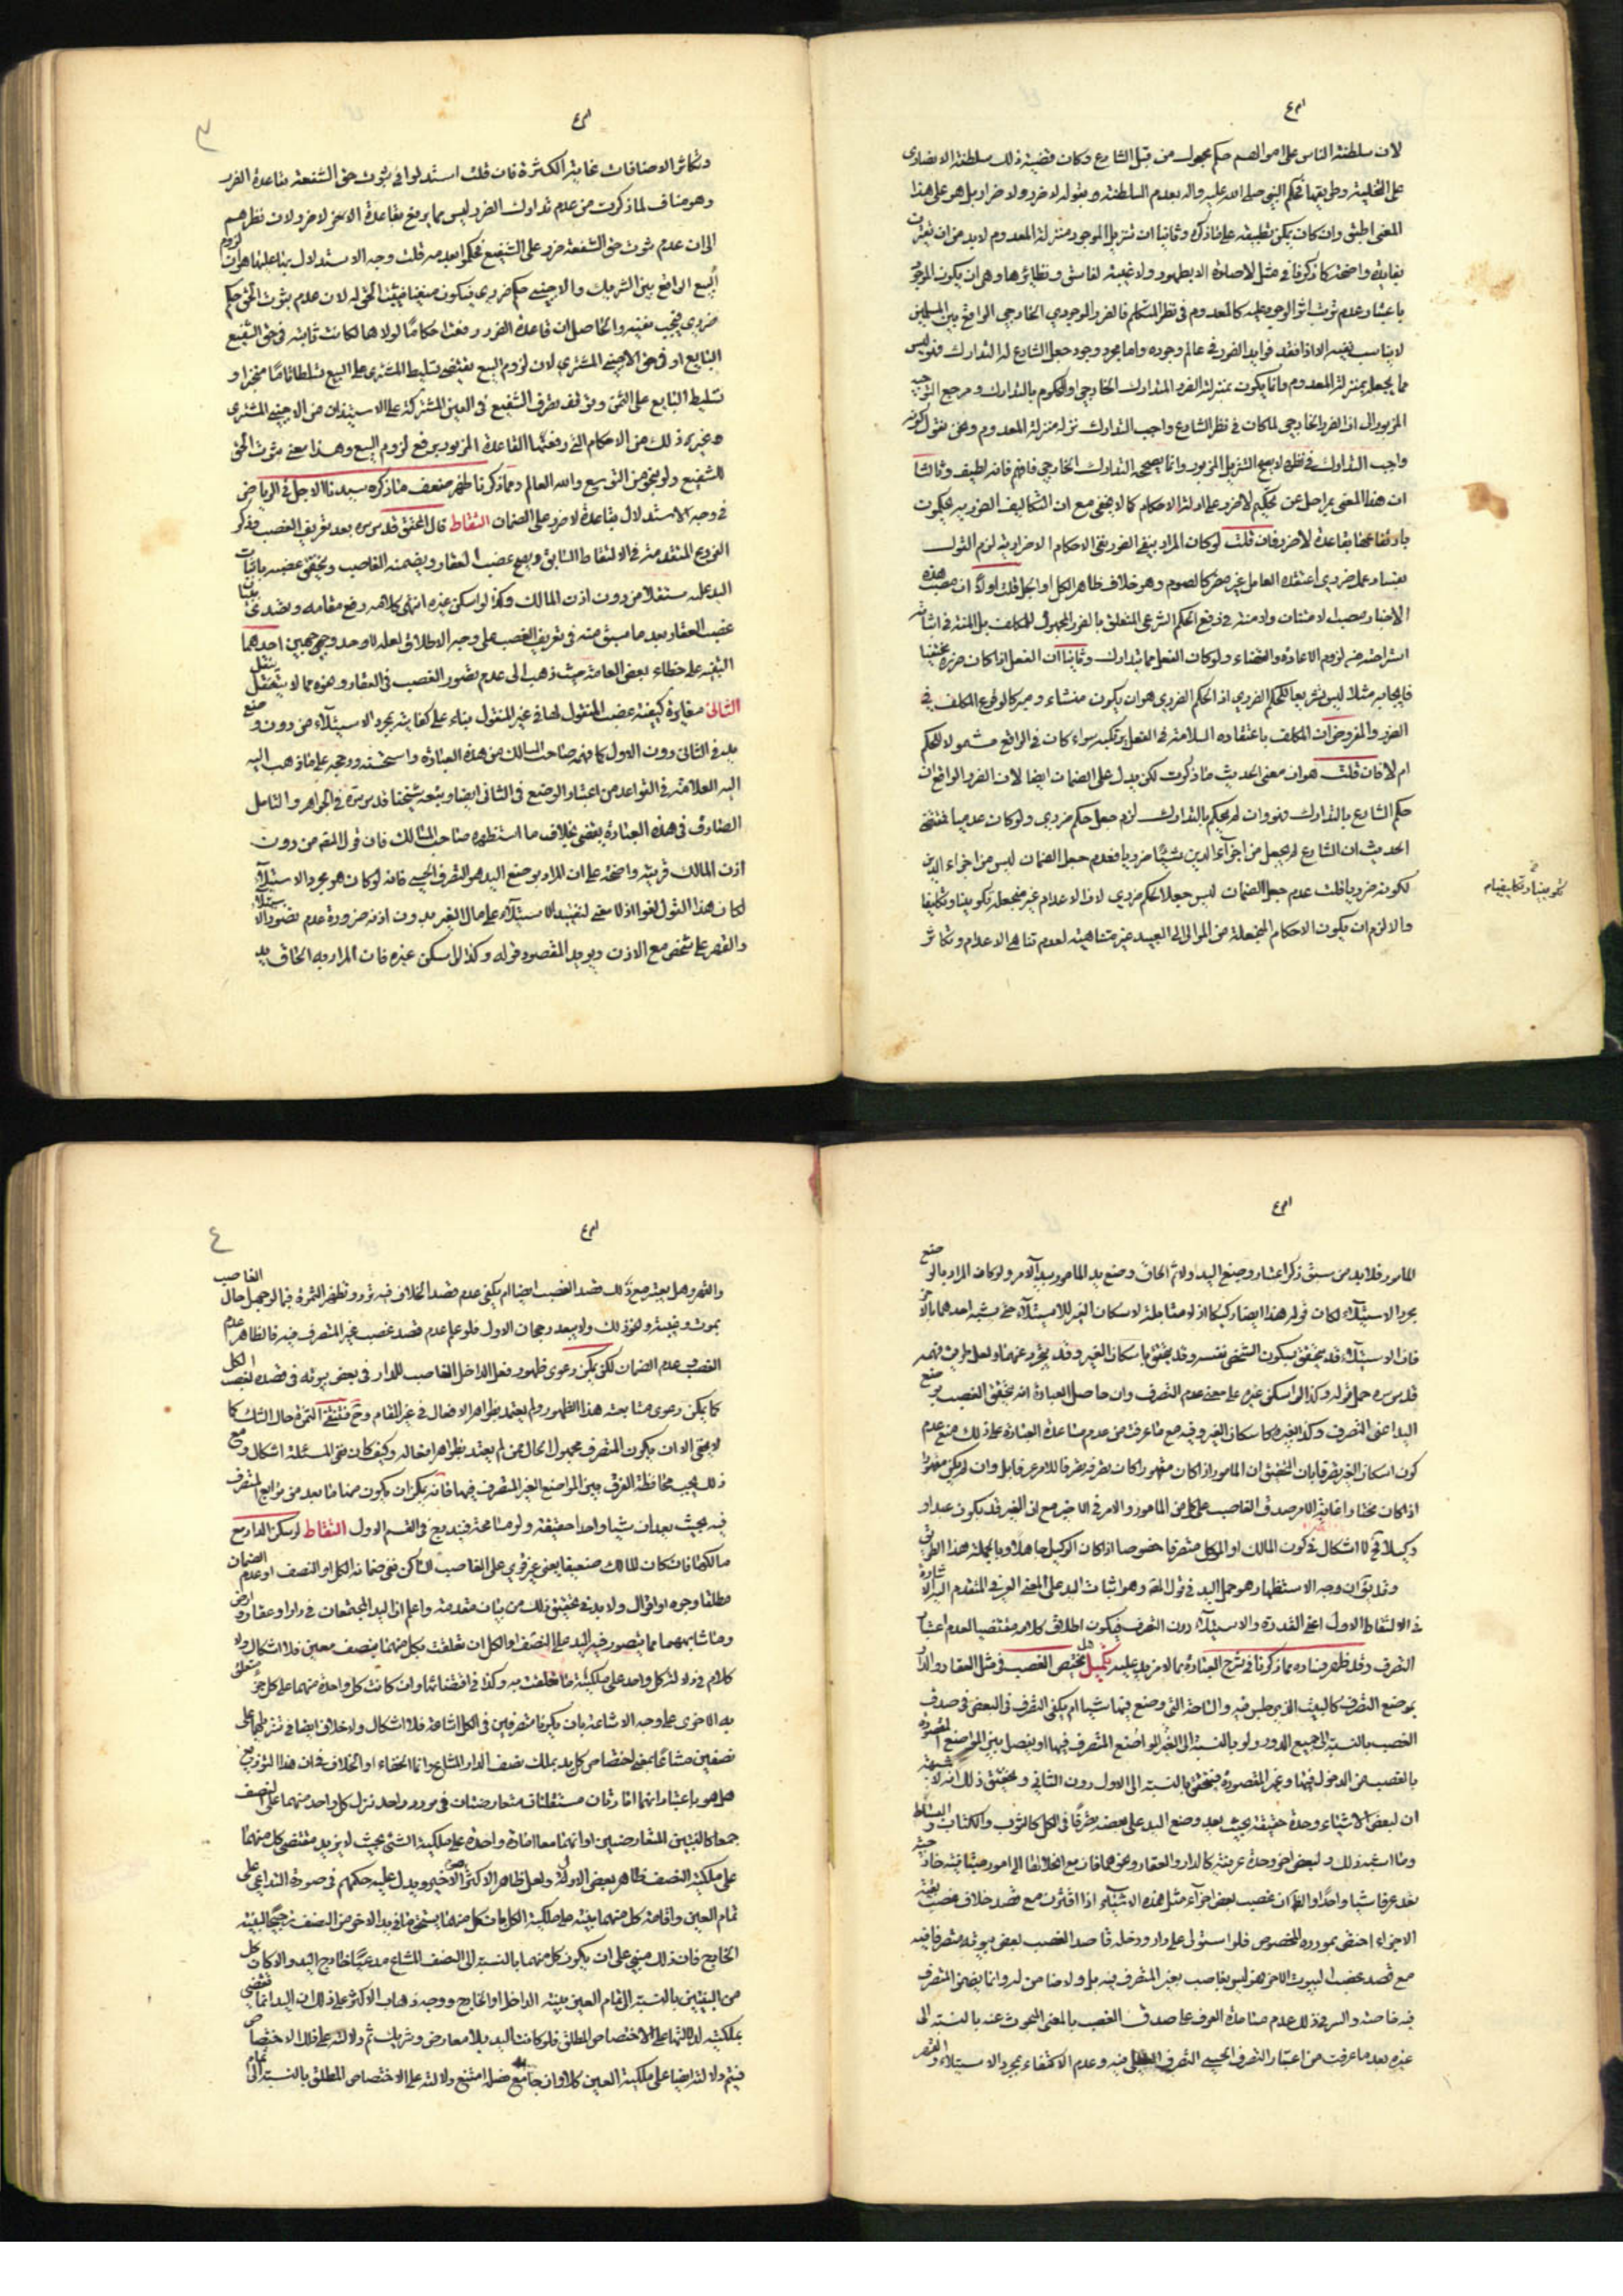 لان سلطنة الناس على اموالهم حكم مجعول من قبل الشارع وكان قضية ذلك سلطنة الانصارى
على التخلية وطريقها حكم النبي صلى الله عليه واله بعدم السلطنة وبقوله لا ضرر ولا ضرار بل هو على هذا
المعنى اطبق وان كان يمكن تطبيقه على ما ذكره وثانيا ان تنزيل الموجود منزلة المعدوم لا بد من ان يعتبر
بغاية واضحة كما ذكرنا في مثل لا صلوة الا بطهور ولا غيبة لفاسق ونظائرها وهى ان يكون الموجود
باعتبار عدم ترتب اثر الوجود عليه كالمعدوم فى نظر المتكلم فالضرر الموجودي الخارجي الواقع بين المسلمين
لا يناسب نفيه الا اذا فقد فوايد الضرر في عالم وجوده واما مجرد وجود جعل الشارع له التدارك فليس
مما يجعل بمنزلة المعدوم وانما يكون بمنزلة الضرر المتدارك الخارجي او المحكوم بالتدارك ومرجع التوجيه
المزبور الى ان الضرر الخارجي لما كان في نظر الشارع واجب التدارك نزله منزلة المعدوم ونحن نقول كونه
واجب التدارك في نظره لا يصح التنزيل المزبور وانما يصححه التدارك الخارجي فافهم فانه لطيف وثالثا
ان هذا المعنى بمراحل عن تحكيم لا ضرر على ادلة الاحكام كما لا يخفى مع ان التكاليف الضررية محكوم
بارتفاعها بقاعدة لا ضرر فان قلت لو كان المراد بنفي الضرر نفي الاحكام الاضرارية لزم القول
بفساد عمل ضروري اعتقد العامل غير ضرر كالصوم وهو خلاف ظاهر الكل او الجل قلت اولا ان مصب هذه
الاخبار مصب الامتنان ولا منة في رفع الحكم الشرعي المتعلق بالضرر المجهول للمكلف بل المنة في اثباته
فايجابه مثلا ليس تشريعا للحكم الضرري اذ الحكم الضرري هو ان يكون منشاء ومحركا لوقوع المكلف في
الضرر والمفروض ان المكلف باعتقاده السلامة في الفعل يرتكبه سواء كان في الواقع مشمولا للحكم
ام لا فان قلت هو ان معنى الحديث ما ذكرت لكن يدل على الضمان ايضا لان الضرر الواقع ان
حكم الشارع بالتدارك فهو وان لم يحكم بالتدارك لزم جعل حكم ضرري ولو كان عدميا فمقتضى
الحديث ان الشارع لم يجعل من اجزاء الدين شيئا ضرريا فعدم جعل الضمان ليس من اجزاء الدين
لكونه ضرريا قلت عدم جعل الضمان ليس جعلا لحكم ضرري لان الاعدام غير منجعلة تكوينا وتكليفا
والا لزم ان يكون الاحكام المنجعلة من الموالى الى العبيد غير متناهية لعدم تناهى الاعدام وتكاثر
وتكاثر الاضافات غاية الكثرة فان قلت استدلوا في ثبوت حق الشفعة بقاعدة الضرر
وهو مناف لما ذكرت من عدم تدارك الضرر ليس مما يرفع بقاعدة لا ضرر ولا ن نظرهم
الى ان عدم ثبوت حق الشفعة ضرر على الشفيع فحكموا بعدمه قلت وجه الاستدلال بها علينا هو ان لزوم
البيع الواقع بين الشريك والاجنبي حكم ضرري فيكون منفيا فيثبت الحق له لان عدم ثبوت الحق حكم
ضرري فيجب نفيه والحاصل ان قاعدة الضرر رفعت احكاما لولاها لكانت ثابتة في حق الشفيع
البايع او في حق الاجنبي المشتري لان لزوم البيع يقتضى تسليط المشتري على المبيع تسلطا تاما منجزا و
تسليط البايع على الثمن وتوقف تصرف الشفيع في العين المشتركة على الاستيذان من الاجنبي المشترى
وغير ذلك من الاحكام التي رفعتها القاعدة المزبورة برفع لزوم البيع وهذا معنى ثبوت الحق
للشفيع ولو بنحو من التوسع والله العالم ومما ذكرنا ظهر ضعف ما ذكره سيدنا الاجل في الرياض
في وجه الاستدلال بقاعدة لا ضرر على الضمان التقاط قال المحقق قدس سره بعد تعريف الغصب وذكر
الفروع المتقدمة في الالتقاط السابق ويصح غصب العقار ويضمنه الغاصب ويتحقق غصبه باثبات
اليد عليه مستقلا من دون اذن المالك وكذا لو اسكن غيره انتهى كلامه رفع مقامه وتصدى لبيان
غصب العقار بعد ما سبق منه في تعريف الغصب على وجه الاطلاق لعله لاحد وجهين احدهما
التنبيه على خطاء بعض العامة حيث ذهب الى عدم تصور الغصب في العقار وهو مما لا يتعقل
الثانى مغايرة كيفية غصب المنقول لها في غير المنقول بناء على كفاية مجرد الاستيلاء من دون وضع
يد في الثانى دون الاول كما فهمه صاحب المسالك من هذه العبارة واستحسنه ورجحه على ما ذهب اليه
اليه العلامة في القواعد من اعتبار الوضع فى الثانى ايضا وتبعه شيخنا قدس سره في الجواهر والتامل
الصادق في هذه العبارة يقضى بخلاف ما استظهره صاحب المسالك فان قول المص من دون
اذن المالك قرينة واضحة على ان المراد بوضع اليد هو التصرف الحسي فانه لو كان هو مجرد الاستيلاء
لكان هذا القول لغوا اذ لا معنى لتقييد الاستيلاء على مال الغير بدون اذنه ضرورة عدم تصور الاستيلاء
والقهر على شخص مع الاذن ويؤيد المقصود قوله وكذا لو اسكن غيره فان المراد به الحاق يد
المامور فلا بد من سبق ذكر اعتبار وضع اليد اولا ثم الحاق وضع يد المامور بيد الآمر ولو كان المراد بالوضع
مجرد الاستيلاء لكان قوله هذا ايضا ركيكا اذ لا مقابلة لاسكان الغير للاستيلاء حتى يشبه احدهما بالآخر
فان الاستيلاء قد يتحقق بسكون الشخص نفسه وقد يتحقق باسكان الغير وقد يتجرد عنهما ولعل
قدس سره حمل قوله وكذا لو اسكن غيره على معنى عدم التصرف وان حاصل العبارة انه يتحقق الغصب بوضع
اليد اعنى التصرف وكذا بغيره كاسكان الغير وفيه مع ما عرفت من عدم مساعدة العبارة على ذلك منع عدم
كون اسكان الغير تصرفا بان التحقيق ان المامور اذا كان مقهورا كان تصرفه تصرفا للامر عرفا بل وان لم يكن مقهورا
اذا كان مختارا غاية الامر صدق الغاصب على كل من المامور والامر فى الاخير مع ان الغير قد يكون عبدا او
وكيلا فح لا اشكال في كون المالك او الموكل متصرفا خصوصا اذا كان الوكيل جاهلا وبالجملة هذا الطريق
وقد يق ان وجه الاستظهار هو حمل اليد في قول المص وهو اثبات اليد على المعنى العرفي المتقدم اليه الاشارة
في الالتقاط الاول اعنى القدرة والاستيلاء دون التصرف فيكون اطلاق كلامه مقتضيا لعدم اعتبار
التصرف وقد ظهر فساده مما ذكرنا في شرح العبارة بما لا مزيد عليه تكميل هل يختص الغصب في مثل العقار والدار
بموضع التصرف كالبيت الذي جلس فيه والساحة التي وضع فيها شيئا ام يكفى التصرف في البعض فى صدق
الغصب بالنسبة الى جميع الدور ولو بالنسبة الى الغير المواضع المتصرف فيها او يفصل بين المواضع المقصودة
بالغصب من الدخول فيها وغير المقصودة فيتحقق بالنسبة الى الاول دون الثاني وتحقيق ذلك انه لا شبهة
ان لبعض الاشياء وحدة حقيقة بحيث يعد وضع اليد على بعضه تصرفا في الكل كالثوب والكتاب والبساط
وما اشبه ذلك ولبعض اخر وحدة عرفية كالدار والعقار ونحوهما فان مع انحلالها الى امور متباينة خارجية
يعد عرفا شيئا واحدا والظ ان غصب بعض اجزاء مثل هذه الاشياء اذا اقترن مع قصد خلاف غصب بقية
الاجزاء اختص بمورده المخصوص فلو استولى على دار ودخله قاصدا لغصب بعض بيوته متصرفا فيه
مع قصد غصب البيوت الاخر فهو ليس بغاصب بغير المتصرف فيه بل ولا ضامن له وانما يضمن المتصرف
فيه خاصة والسر في ذلك عدم مساعدة العرف على صدق الغصب بالمعنى المبحوث عنه بالنسبة الى
غيره بعد ما عرفت من اعتبار التصرف الحسي فيه وعدم الاكتفاء بمجرد الاستيلاء والقهر
والقهر وهل يعتبر مع ذلك قصد الغصب ايضا ام يكفى عدم قصد الخلاف فيه تردد وتظهر الثمرة فيما لو جهل حال الغاصب
بموت وغيبة ونحو ذلك ولا يبعد رجحان الاول فلو علم عدم قصد غصب غير المتصرف فيه فالظاهر عدم
الغصب عدم الضمان لكن يمكن دعوى ظهور فعل الداخل الغاصب للدار في بعض بيوته في قصده لغصب الكل
كما يمكن دعوى متابعة هذا الظهور ولم يعتمد بظواهر الافعال في غير المقام وح تنتفى الثمرة حال الشك كما
لا يخفى الا ان يكون المتصرف مجهول الحال ممن لم يعتمد بظواهر افعاله وكيف كان ففى المسئلة اشكال ومع
ذلك يجب محافظة الفرق بين المواضع الغير المتصرف فيها فانه يمكن ان يكون منها ما يعد من توابع المتصرف
فيه بحيث يعدان شيئا واحدا حقيقة ولو مسامحة فيندرج فى القسم الاول التقاط لو سكن الدار مع
مالكها فان كان المالك ضعيفا يعنى غير قوي على الغاصب الساكن ففى ضمانه الكل او النصف او عدم الضمان
مطلقا وجوه او اقوال ولا بد في تحقيق ذلك من بيان مقدمة واعلم ان اليد المجتمعتان في دار او عقار او ارض
وما شابههما مما يتصور فيه اليد على النصف او الكل ان تعلقت بكل منهما بنصف معين فلا اشكال ولا
كلام في دلالة كل واحد على ملكية ما تعلقت به وكذا في اقتضائها وان كانت كل واحدة منهما على كل جزء متعلق
به الاخرى على وجه الاشاعة بان يكونا متصرفين في الكل اشاعة فلا اشكال ولا خلاف ايضا في تنزيلهما على
نصفين مشاعا بمعنى اختصاص كل يد بملك نصف الدار المشاع وانما الخفاء او الخلاف في ان هذا التوزيع
هل هو باعتبار انهما امارتان مستقلتان متعارضتان في مورد واحد نزل كل واحد منهما على النصف
جمعا كالبينتين المتعارضتين او انهما معا امارة واحدة على ملكية الشئ بحيث لا يزيد مقتضى كل منهما
على ملكية النصف ظاهر بعض الاول ولعل ظاهر الاكثر الاخير ويدل عليه حكمهم في صورة التداعي على
تمام العين واقامة كل منهما بينة على ملكية الكل بان كل منهما يستحق ما في يد الاخر من النصف ترجيحا لبينة
الخارج فان ذلك مبنى على ان يكون كل منهما بالنسبة الى النصف المشاع مدعيا خارج اليد والا كان كل
من البينتين بالنسبة الى تمام العين بينة الداخل او الخارج ووجه ذهاب الاكثر على ذلك ان اليد انما تقتضى
بملكية لدلالتها على الاختصاص المطلق فلو كانت اليد بلا معارض وشريك تم دلالته على ذلك الاختصاص
فيتم دلالته ايضا على ملكية العين كلا وان جامع ضدا امتنع دلالته على الاختصاص المطلق بالنسبة الى تمام